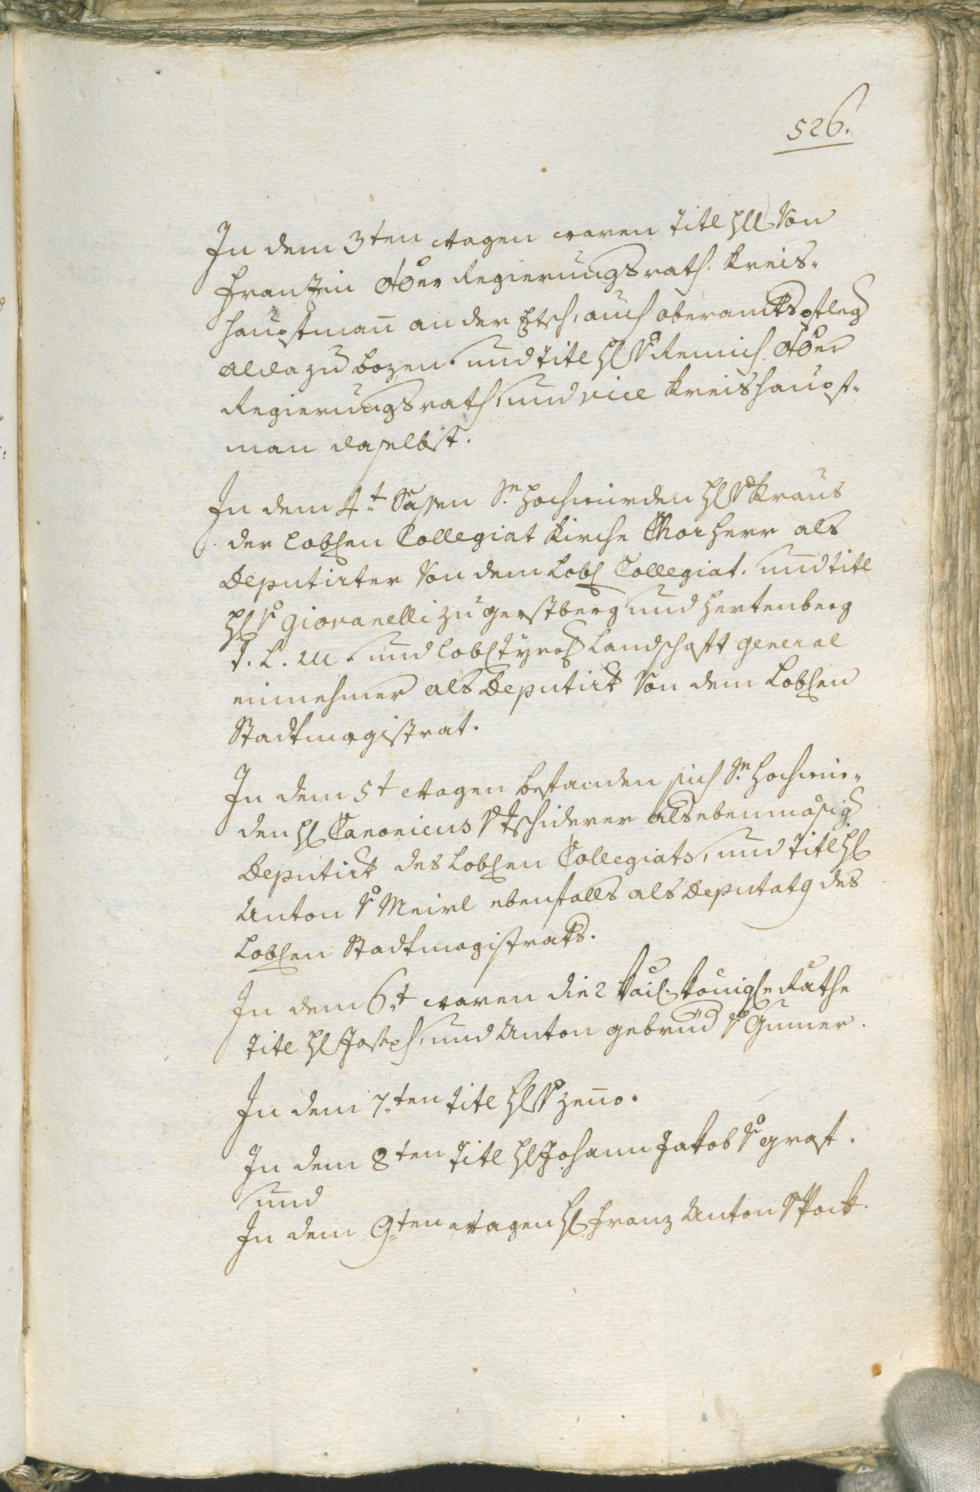 526.
In dem 3ten Wagen waren Titl Hll von
Franzin OÖer Regierungsrath. Kreis-
hauptmañ an der Etsch, auch oberamtspfleg
alda zu Bozen. und Titl Hl v Remich OÖer
Regierungsrath, und vice Kreishaupt-
man daselbst.
In dem 4t saßen Sr Hochwürden Hl v Kraus
der Lobl:en Collegiat Kirche Chorherr als
Deputirter von dem Lobl Collegiat. und Titl
Hl v Giovanelli zu gerstberg und hertenberg
T. L. M. und lobl tyrol Landschaft general
einnehmer als Deputirt von dem Lobl:en
Stadtmagistrat.
In dem 5t Wagen befanden sich Sr Hochwür-
den Hl Canonicus v Tschiderer als ebenmäsig
Deputirt des Lobl:en Collegiats, und Titl Hl
Anton v Meirl ebenfalls als Deputatg des
Lobl:en Stadtmagistrats.
In dem 6t waren die 2 Kais. Königl:e Räthe
Titl Hl Joseph, und Anton gebrüd v Gumer.
In dem 7ten Titl Hl v Zeño.
In dem 8ten Titl Hl Johann Jakob v graf.
und
In dem 9ten Wagen Hl Franz Anton v Pock.